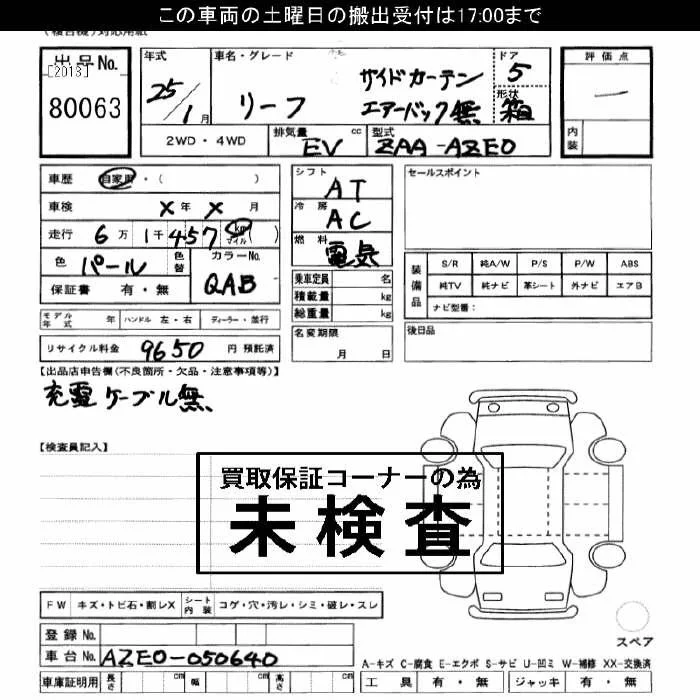 この車両の土曜日の搬出受付は17:00まで
出品No.
[2013]
80063
年式
25/1月
車名・グレード
リーフ
サイドカーテン
エアーバック無
ドア
5
形状
箱
評価点
—
内装
2WD・4WD
排気量 EV cc
型式 ZAA-AZE0
車歴 自家用・( )
車検 X年X月
走行 6万1千457 km マイル
色 パール 色替
カラーNo. QAB
保証書 有・無
シフト AT
冷房 AC
燃料 電気
乗車定員 名
積載量 kg
総重量 kg
名変期限
月 日
セールスポイント
装備品
S/R 純A/W P/S P/W ABS
純TV 純ナビ 革シート 外ナビ エアB
ナビ型番:
後日品
モデル年式 年 ハンドル 左・右 ディーラー・並行
リサイクル料金 9650 円 預託済
【出品店申告欄(不良箇所・欠品・注意事項等)】
充電ケーブル無、
【検査員記入】
買取保証コーナーの為
未検査
FW キズ・トビ石・割レX シート内装 コゲ・穴・汚レ・シミ・破レ・スレ
登録No.
車台No. AZE0-050640
車庫証明用 長さ cm 幅 cm 高さ cm
スペア
A-キズ C-腐食 E-エクボ S-サビ U-凹ミ W-補修 XX-交換済
工具 有・無 ジャッキ 有・無